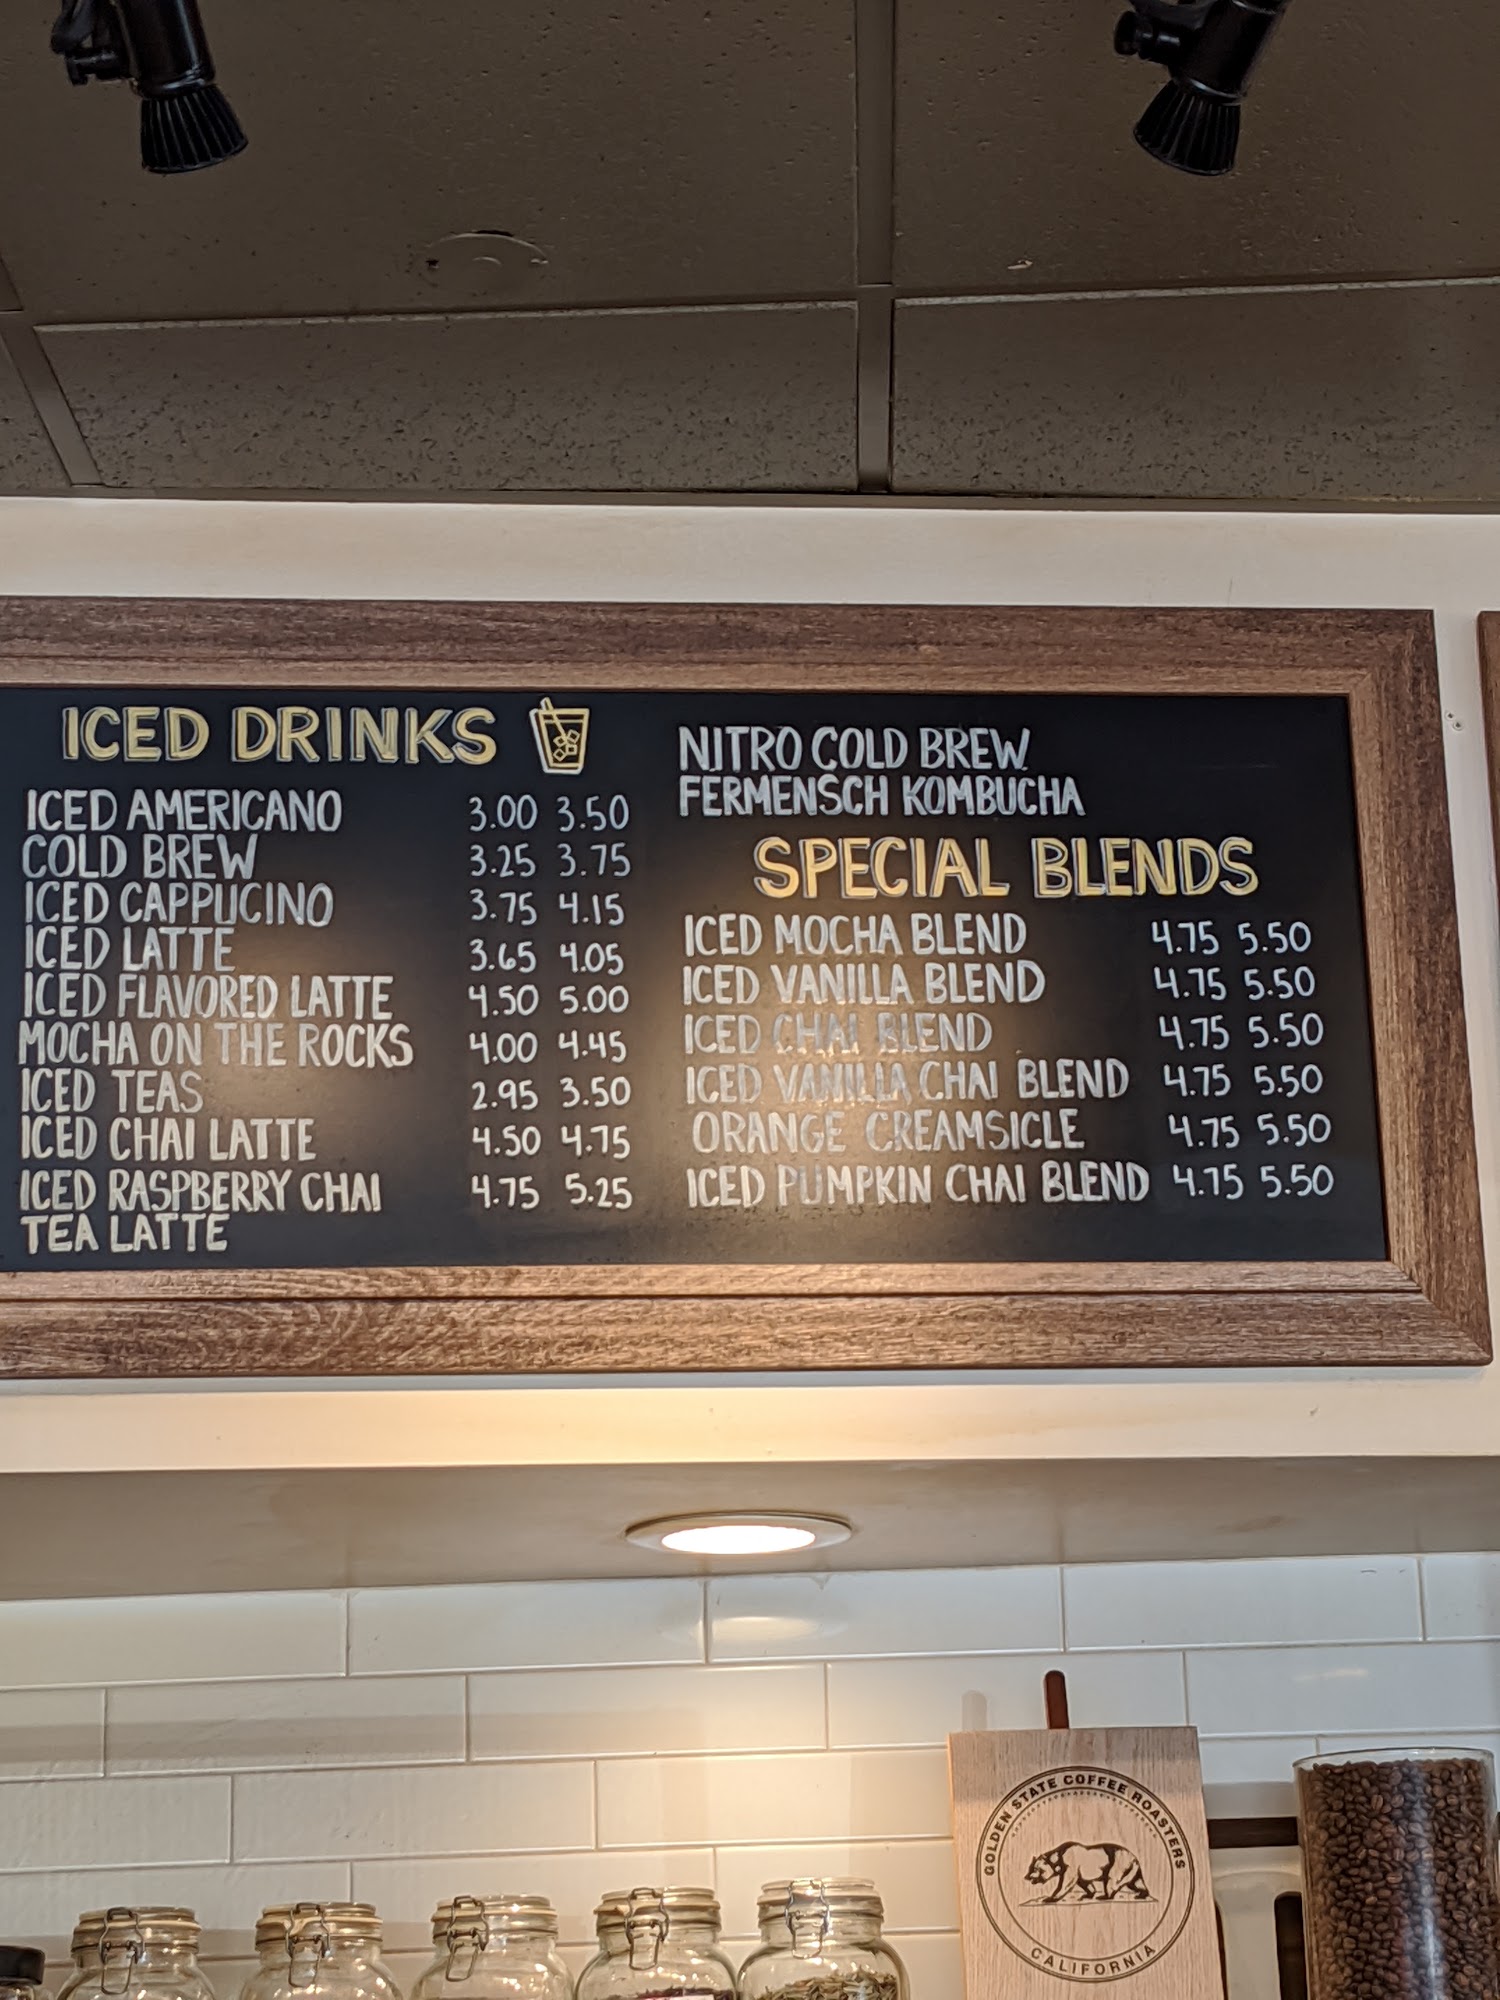 ICED DRINKS
ICED AMERICANO 3.00 3.50
COLD BREW 3.25 3.75
ICED CAPPUCINO 3.75 4.15
ICED LATTE 3.65 4.05
ICED FLAVORED LATTE 4.50 5.00
MOCHA ON THE ROCKS 4.00 4.45
ICED TEAS 2.95 3.50
ICED CHAI LATTE 4.50 4.75
ICED RASPBERRY CHAI 4.75 5.25
TEA LATTE
NITRO COLD BREW
FERMENSCH KOMBUCHA
SPECIAL BLENDS
ICED MOCHA BLEND 4.75 5.50
ICED VANILLA BLEND 4.75 5.50
ICED CHAI BLEND 4.75 5.50
ICED VANILLA CHAI BLEND 4.75 5.50
ORANGE CREAMSICLE 4.75 5.50
ICED PUMPKIN CHAI BLEND 4.75 5.50
GOLDEN STATE COFFEE ROASTERS
CALIFORNIA